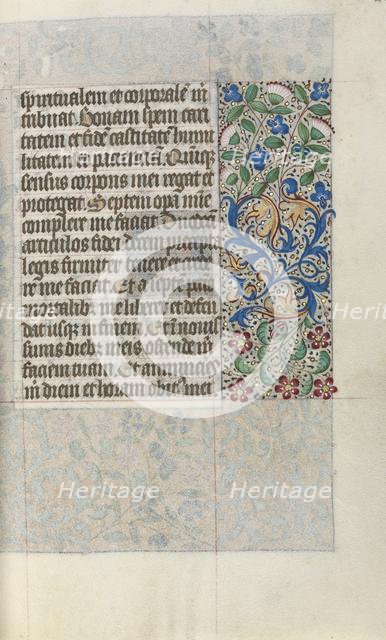 spiritualem et corporalē m̄
tribuat. Bonam spem cari
tatem et fidē castitatē humi
litatem et pacienciā. Quinqȝ
sensus corporis mei regat et
protegat. Septem opa mie
complere me faciat. Duodeci
articulos fidei decem
legis firmiter tenere et
re me faciat. Et a septē
mortalibꝰ me liberet et defen
dat usqȝ in finem. Et ī nouis
simis diebꝰ meis ostende m̄
faciem tuam. Et annuncies
m̄ diem et horam obitus mei
Heritage Heritage
Heritage Heritage
Heritage Heritage